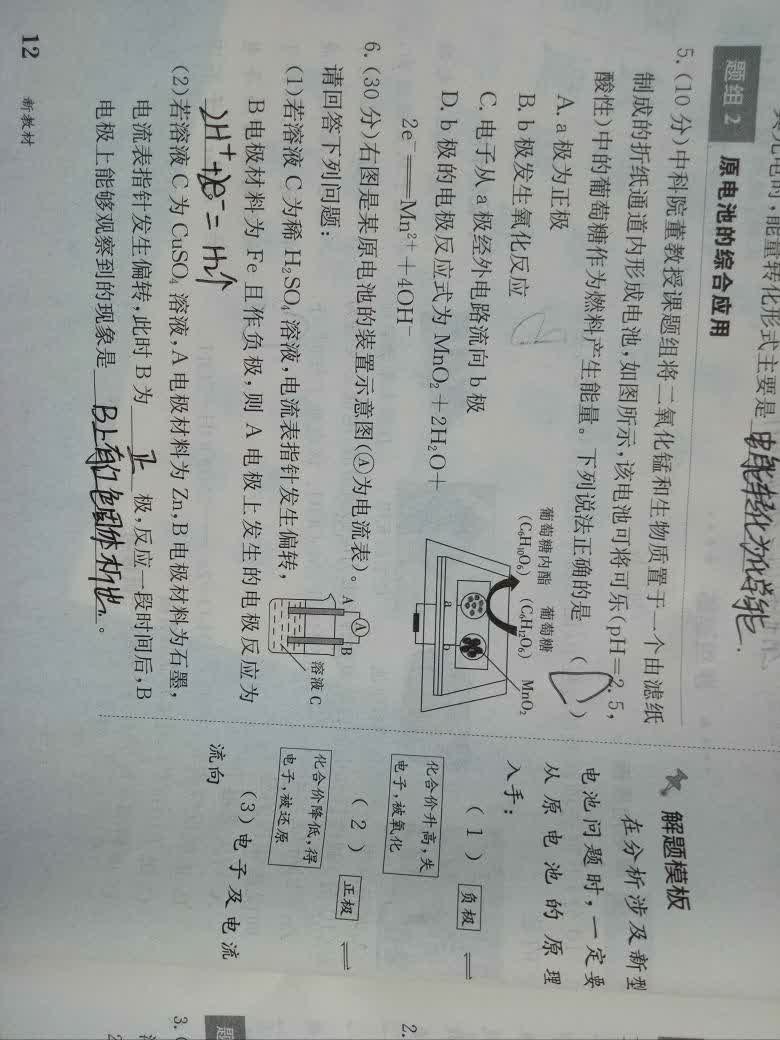 能量转化形式主要是电能转化为化学能.
题组2 原电池的综合应用
5.(10分)中科院董教授课题组将二氧化锰和生物质置于一个由滤纸
制成的折纸通道内形成电池,如图所示,该电池可将可乐(pH=2.5,
酸性)中的葡萄糖作为燃料产生能量。下列说法正确的是( D )
A.a极为正极
B.b极发生氧化反应
C.电子从a极经外电路流向b极
D.b极的电极反应式为MnO₂+2H₂O+
2e⁻══Mn²⁺+4OH⁻
葡萄糖内酯 葡萄糖
(C₆H₁₀O₆) (C₆H₁₂O₆) MnO₂
a b
6.(30分)右图是某原电池的装置示意图(Ⓐ为电流表)。
请回答下列问题:
A Ⓐ B
溶液C
(1)若溶液C为稀H₂SO₄溶液,电流表指针发生偏转,
B电极材料为Fe且作负极,则A电极上发生的电极反应为
2H⁺+2e⁻=H₂↑
(2)若溶液C为CuSO₄溶液,A电极材料为Zn,B电极材料为石墨,
电流表指针发生偏转,此时B为 正 极,反应一段时间后,B
电极上能够观察到的现象是 B上有红色固体析出 。
12 新教材
解题模板
在分析涉及新型
电池问题时,一定要
从原电池的原理
入手:
(1) 负极 ⇌
化合价升高,失
电子,被氧化
(2) 正极 ⇌
化合价降低,得
电子,被还原
(3)电子及电流
流向
题
2.
3.(